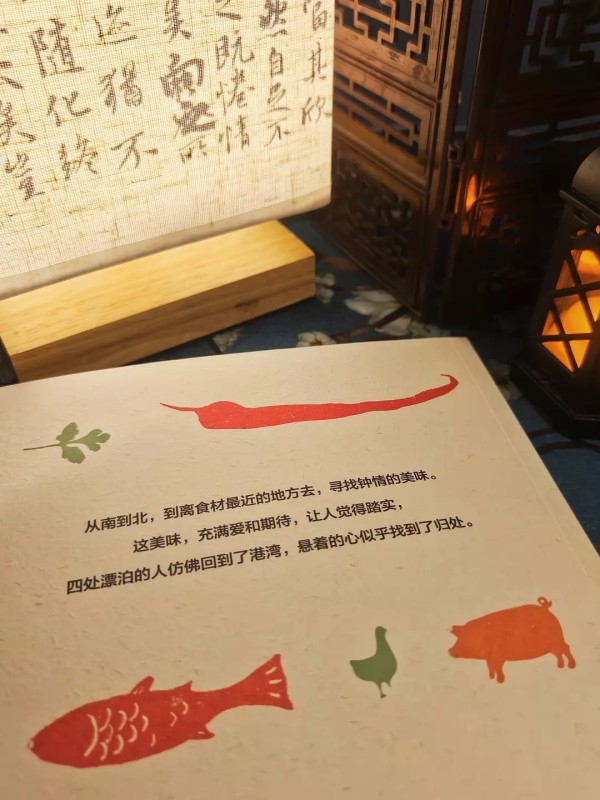 當其欣
然自足不
之既惓情
矣向之所
迹猶不
隨化終
矣豈
从南到北，到离食材最近的地方去，寻找钟情的美味。
这美味，充满爱和期待，让人觉得踏实，
四处漂泊的人仿佛回到了港湾，悬着的心似乎找到了归处。